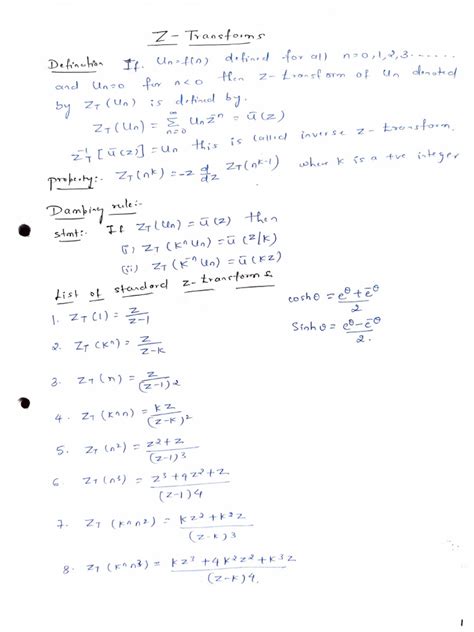 Z - Transforms
Definition If Un=f(n) defined for all n=0,1,2,3......
and Un=0 for n<0 then Z-transform of Un denoted
by Z_T(Un) is defined by.
Z_T(Un) = ∞Σn=0 Un z^-n = ū(z)
Z_T^-1[ū(z)] = Un this is called inverse z-transform.
property:- Z_T(n^k) = -z d/dz Z_T(n^k-1) where K is a +ve integer
Damping rule:-
stmt:- If Z_T(Un) = ū(z) then
(i) Z_T(K^n Un) = ū(z/k)
(ii) Z_T(K^-n Un) = ū(kz)
List of standard z-transforms
coshθ = e^θ + e^-θ / 2
Sinhθ = e^θ - e^-θ / 2.
1. Z_T(1) = z / z-1
2. Z_T(K^n) = z / z-k
3. Z_T(n) = z / (z-1)2
4. Z_T(K^n n) = kz / (z-k)2
5. Z_T(n²) = z²+z / (z-1)3
6 Z_T(n³) = z³+4z²+z / (z-1)4
7. Z_T(K^n n²) = kz²+k²z / (z-k)3
8. Z_T(K^n n³) = kz³+4k²z²+k³z / (z-k)4.
1